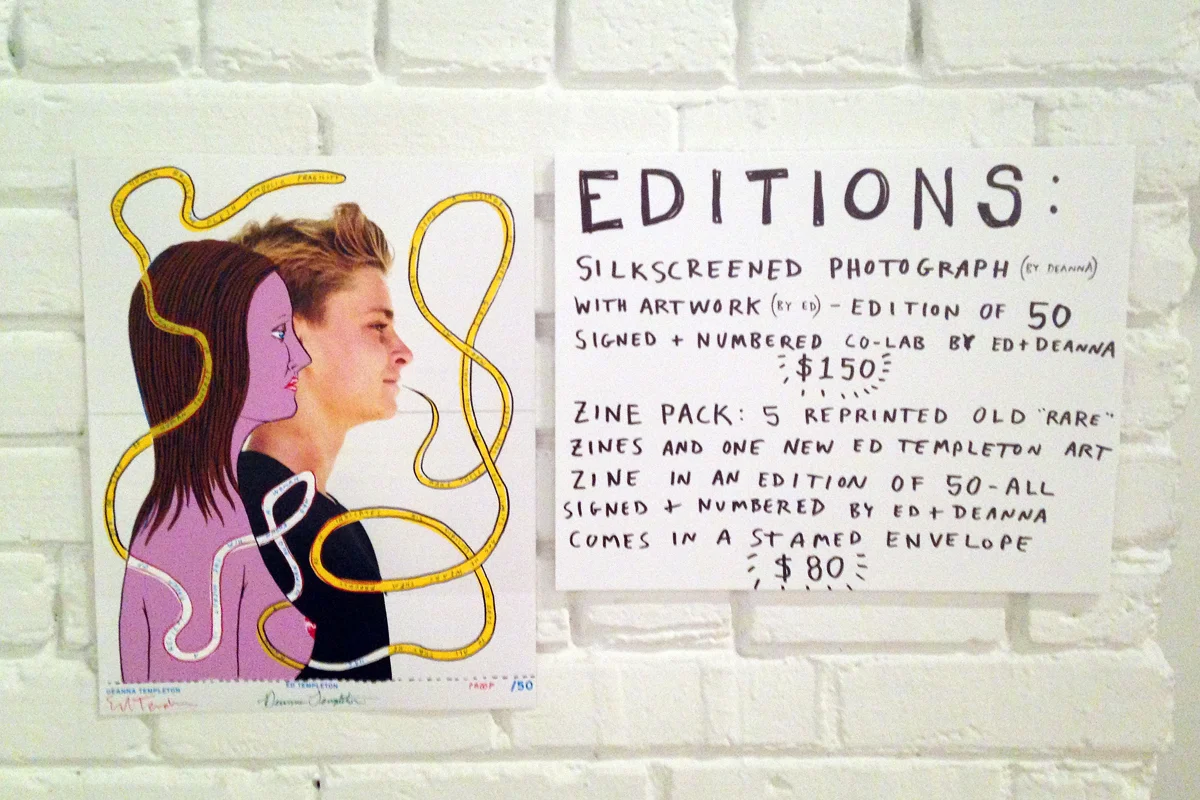 HUMAN
SYMBOLIC FRAGILITY
DEANNA TEMPLETON
ED TEMPLETON
PROOF
/50
Ed Templeton
Deanna Templeton
EDITIONS:
SILKSCREENED PHOTOGRAPH (BY DEANNA)
WITH ARTWORK (BY ED) - EDITION OF 50
SIGNED + NUMBERED CO-LAB BY ED + DEANNA
$150
ZINE PACK: 5 REPRINTED OLD "RARE"
ZINES AND ONE NEW ED TEMPLETON ART
ZINE IN AN EDITION OF 50 - ALL
SIGNED + NUMBERED BY ED + DEANNA
COMES IN A STAMED ENVELOPE
$80